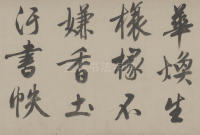 華煥生
榱椽不
嫌香土
汙書帙